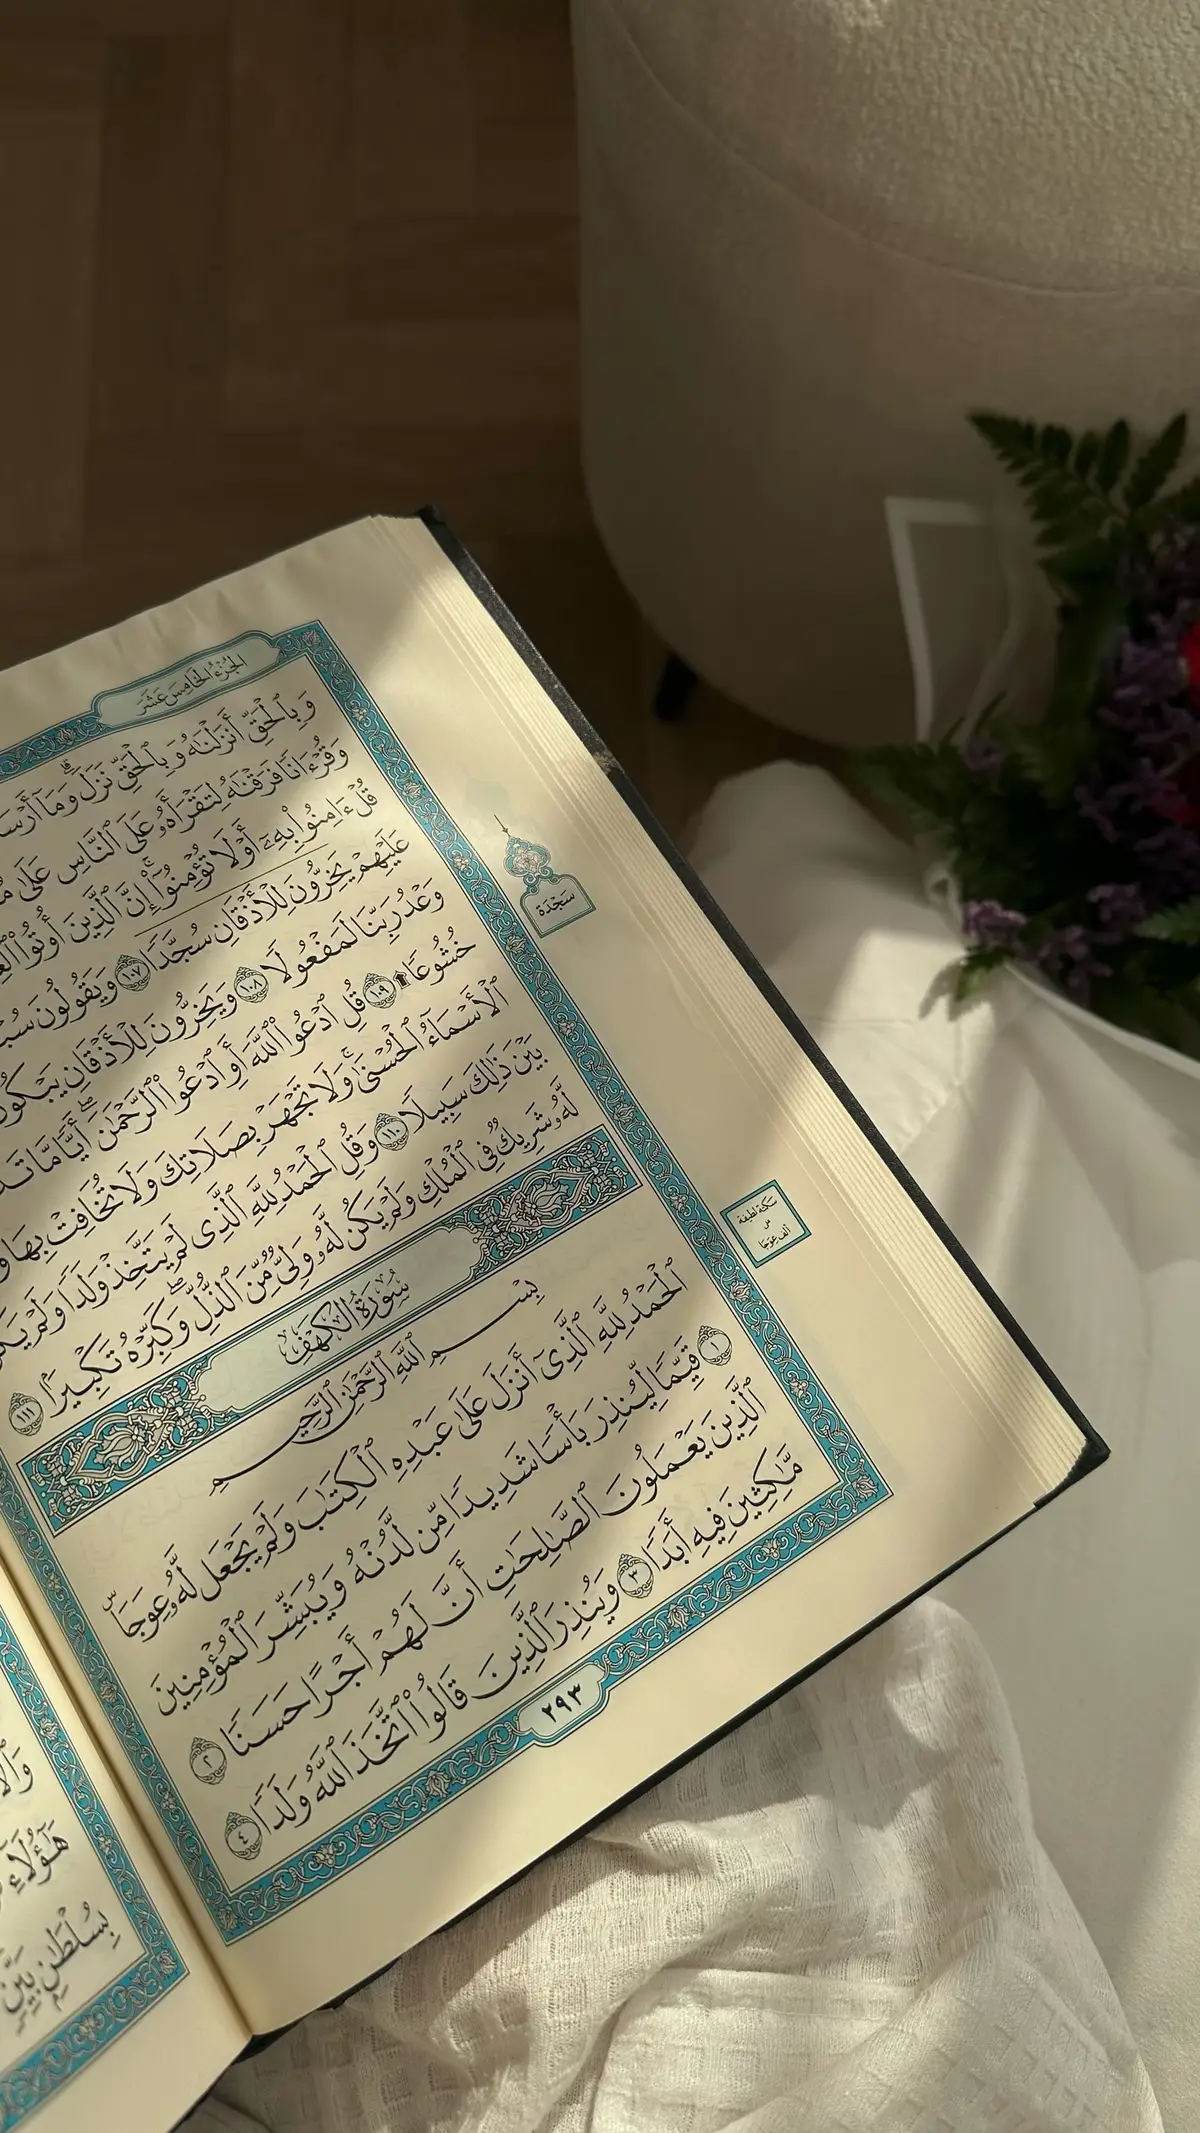 الجزء الخامس عشر
وَبِٱلْحَقِّ أَنزَلْنَٰهُ وَبِٱلْحَقِّ نَزَلَ ۗ وَمَآ أَرْسَ
وَقُرْءَانًا فَرَقْنَٰهُ لِتَقْرَأَهُۥ عَلَى ٱلنَّاسِ عَلَىٰ مُ
قُلْ ءَامِنُوا۟ بِهِۦٓ أَوْ لَا تُؤْمِنُوٓا۟ ۚ إِنَّ ٱلَّذِينَ أُوتُوا۟ ٱلْعِ
عَلَيْهِمْ يَخِرُّونَ لِلْأَذْقَانِ سُجَّدًا ١٠٧ وَيَقُولُونَ سُبْ
وَعْدُ رَبِّنَا لَمَفْعُولًا ١٠٨ وَيَخِرُّونَ لِلْأَذْقَانِ يَبْكُو
خُشُوعًا ۩ ١٠٩ قُلِ ٱدْعُوا۟ ٱللَّهَ أَوِ ٱدْعُوا۟ ٱلرَّحْمَٰنَ ۖ أَيًّا مَّا تَدْ
ٱلْأَسْمَآءُ ٱلْحُسْنَىٰ ۚ وَلَا تَجْهَرْ بِصَلَاتِكَ وَلَا تُخَافِتْ بِهَا وَ
بَيْنَ ذَٰلِكَ سَبِيلًا ١١٠ وَقُلِ ٱلْحَمْدُ لِلَّهِ ٱلَّذِى لَمْ يَتَّخِذْ وَلَدًا وَلَمْ يَكُ
لَّهُۥ شَرِيكٌ فِى ٱلْمُلْكِ وَلَمْ يَكُن لَّهُۥ وَلِىٌّ مِّنَ ٱلذُّلِّ ۖ وَكَبِّرْهُ تَكْبِيرًۢا ١١١
سَجْدَة
سُورَةُ الْكَهْفِ
بِسْمِ ٱللَّهِ ٱلرَّحْمَٰنِ ٱلرَّحِيمِ
سكتة لطيفة
على
ألف عوجا
ٱلْحَمْدُ لِلَّهِ ٱلَّذِىٓ أَنزَلَ عَلَىٰ عَبْدِهِ ٱلْكِتَٰبَ وَلَمْ يَجْعَل لَّهُۥ عِوَجَاۜ
١ قَيِّمًا لِّيُنذِرَ بَأْسًا شَدِيدًا مِّن لَّدُنْهُ وَيُبَشِّرَ ٱلْمُؤْمِنِينَ
ٱلَّذِينَ يَعْمَلُونَ ٱلصَّٰلِحَٰتِ أَنَّ لَهُمْ أَجْرًا حَسَنًا ٢
مَّٰكِثِينَ فِيهِ أَبَدًا ٣ وَيُنذِرَ ٱلَّذِينَ قَالُوا۟ ٱتَّخَذَ ٱللَّهُ وَلَدًا ٤
٢٩٣
هَٰٓؤُلَآءِ
بِسُلْطَٰنٍۭ بَيِّنٍ